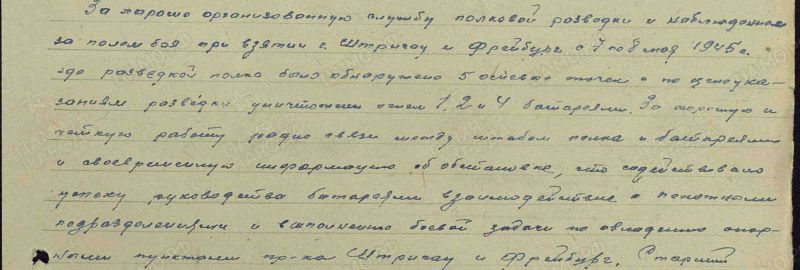 За хорошо организованную службу полковой разведки и наблюдением
за полем боя при взятии г. Штригау и Фрейбург с 7 по 8 мая 1945 г.
где разведкой полка было обнаружено 5 огневых точек и по целеука-
заниям разведки уничтожены огнем 1, 2 и 4 батареями. За хорошую и
четкую работу радио связи между штабом полка и батареями
и своевременную информацию об обстановке, что содействовало
успеху руководства батареями взаимодействие с пехотными
подразделениями и выполнению боевой задачи по овладению опор-
ными пунктами пр-ка Штригау и Фрейбург. Старший